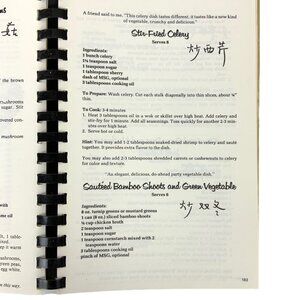 the brown
mushrooms
sugar. Stir
mushroom
oil
lt, 1 table-
mushrooms,
green peas,
egg white.
in this way.
A friend said to me, "This celery dish tastes different, it tastes like a new kind
of vegetable, crunchy and delicious."
Stir-Fried Celery
Serves 8
炒西芹
Ingredients:
1 bunch celery
1¼ teaspoon salt
1 teaspoon sugar
1 tablespoon sherry
dash of MSG, optional
3 tablespoons cooking oil
To Prepare: Wash celery. Cut each stalk diagonally into thin slices, about ¼"
thin.
To Cook: 3-4 minutes
1. Heat 3 tablespoons oil in a wok or skillet over high heat. Add celery and
stir-fry for 1 minute. Add all seasonings. Toss quickly for another 2-3 min-
utes over high heat.
2. Serve hot or cold.
Hint: You may add 1-2 tablespoons soaked-dried shrimp to celery and saute
together. It provides extra flavor to the dish.
You may also add 2-3 tablespoons shredded carrots or cashewnuts to celery
for color and texture.
"An elegant, delicious, do-ahead party vegetable dish."
Sautéed Bamboo Shoots and Green Vegetable
Serves 8
炒双
Ingredients:
8 oz. turnip greens or mustard greens
1 can (8 oz.) sliced bamboo shoots
¼ cup chicken broth
2 teaspoon salt
1 teaspoon sugar
1 teaspoon cornstarch mixed with 2
teaspoons water
3 tablespoons cooking oil
pinch of MSG, optional